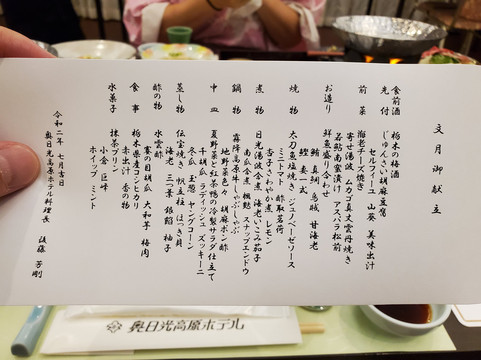 文月御献立
食前酒 栃木の梅酒
先付 じゅんさい胡麻豆腐
セルフィーユ 山葵 美味出汁
前菜 海老チーズ焼き
寄せ湯波 いカゴ真丈雲丹焼き
若鮎南蛮漬け アスパラ松前
お造り 鮮魚盛り合わせ
鮪 真鯛 烏賊 甘海老
鰹 妻一式
焼物 太刀魚塩焼き ジェノベーゼソース
ミニトマト 酢取茗荷
杏子さわやか煮 レモン
煮物 日光湯波含煮 海老いこみ茄子
南瓜含煮 楓麩 スナップエンドウ
鍋物 霧降高原牛しゃぶしゃぶ
地野菜色々 胡麻ポン酢
中皿 夏野菜と紅茶鴨の冷製サラダ仕立て
干胡瓜 ラディッシュ ズッキーニ
冬瓜 玉葱 ヤングコーン
蒸し物 伝宝焼き 帆立柱 はつき貝
海老 三つ葉 銀餡 柚子
酢の物 水雲酢
賽の目胡瓜 大和芋 梅肉
食事 栃木県産コシヒカリ
赤出汁 香の物
水菓子 抹茶プリン
小倉 巨峰
ホイップ ミント
令和二年 七月吉日
奥日光高原ホテル料理長 後藤 芳剛
奥日光高原ホテル